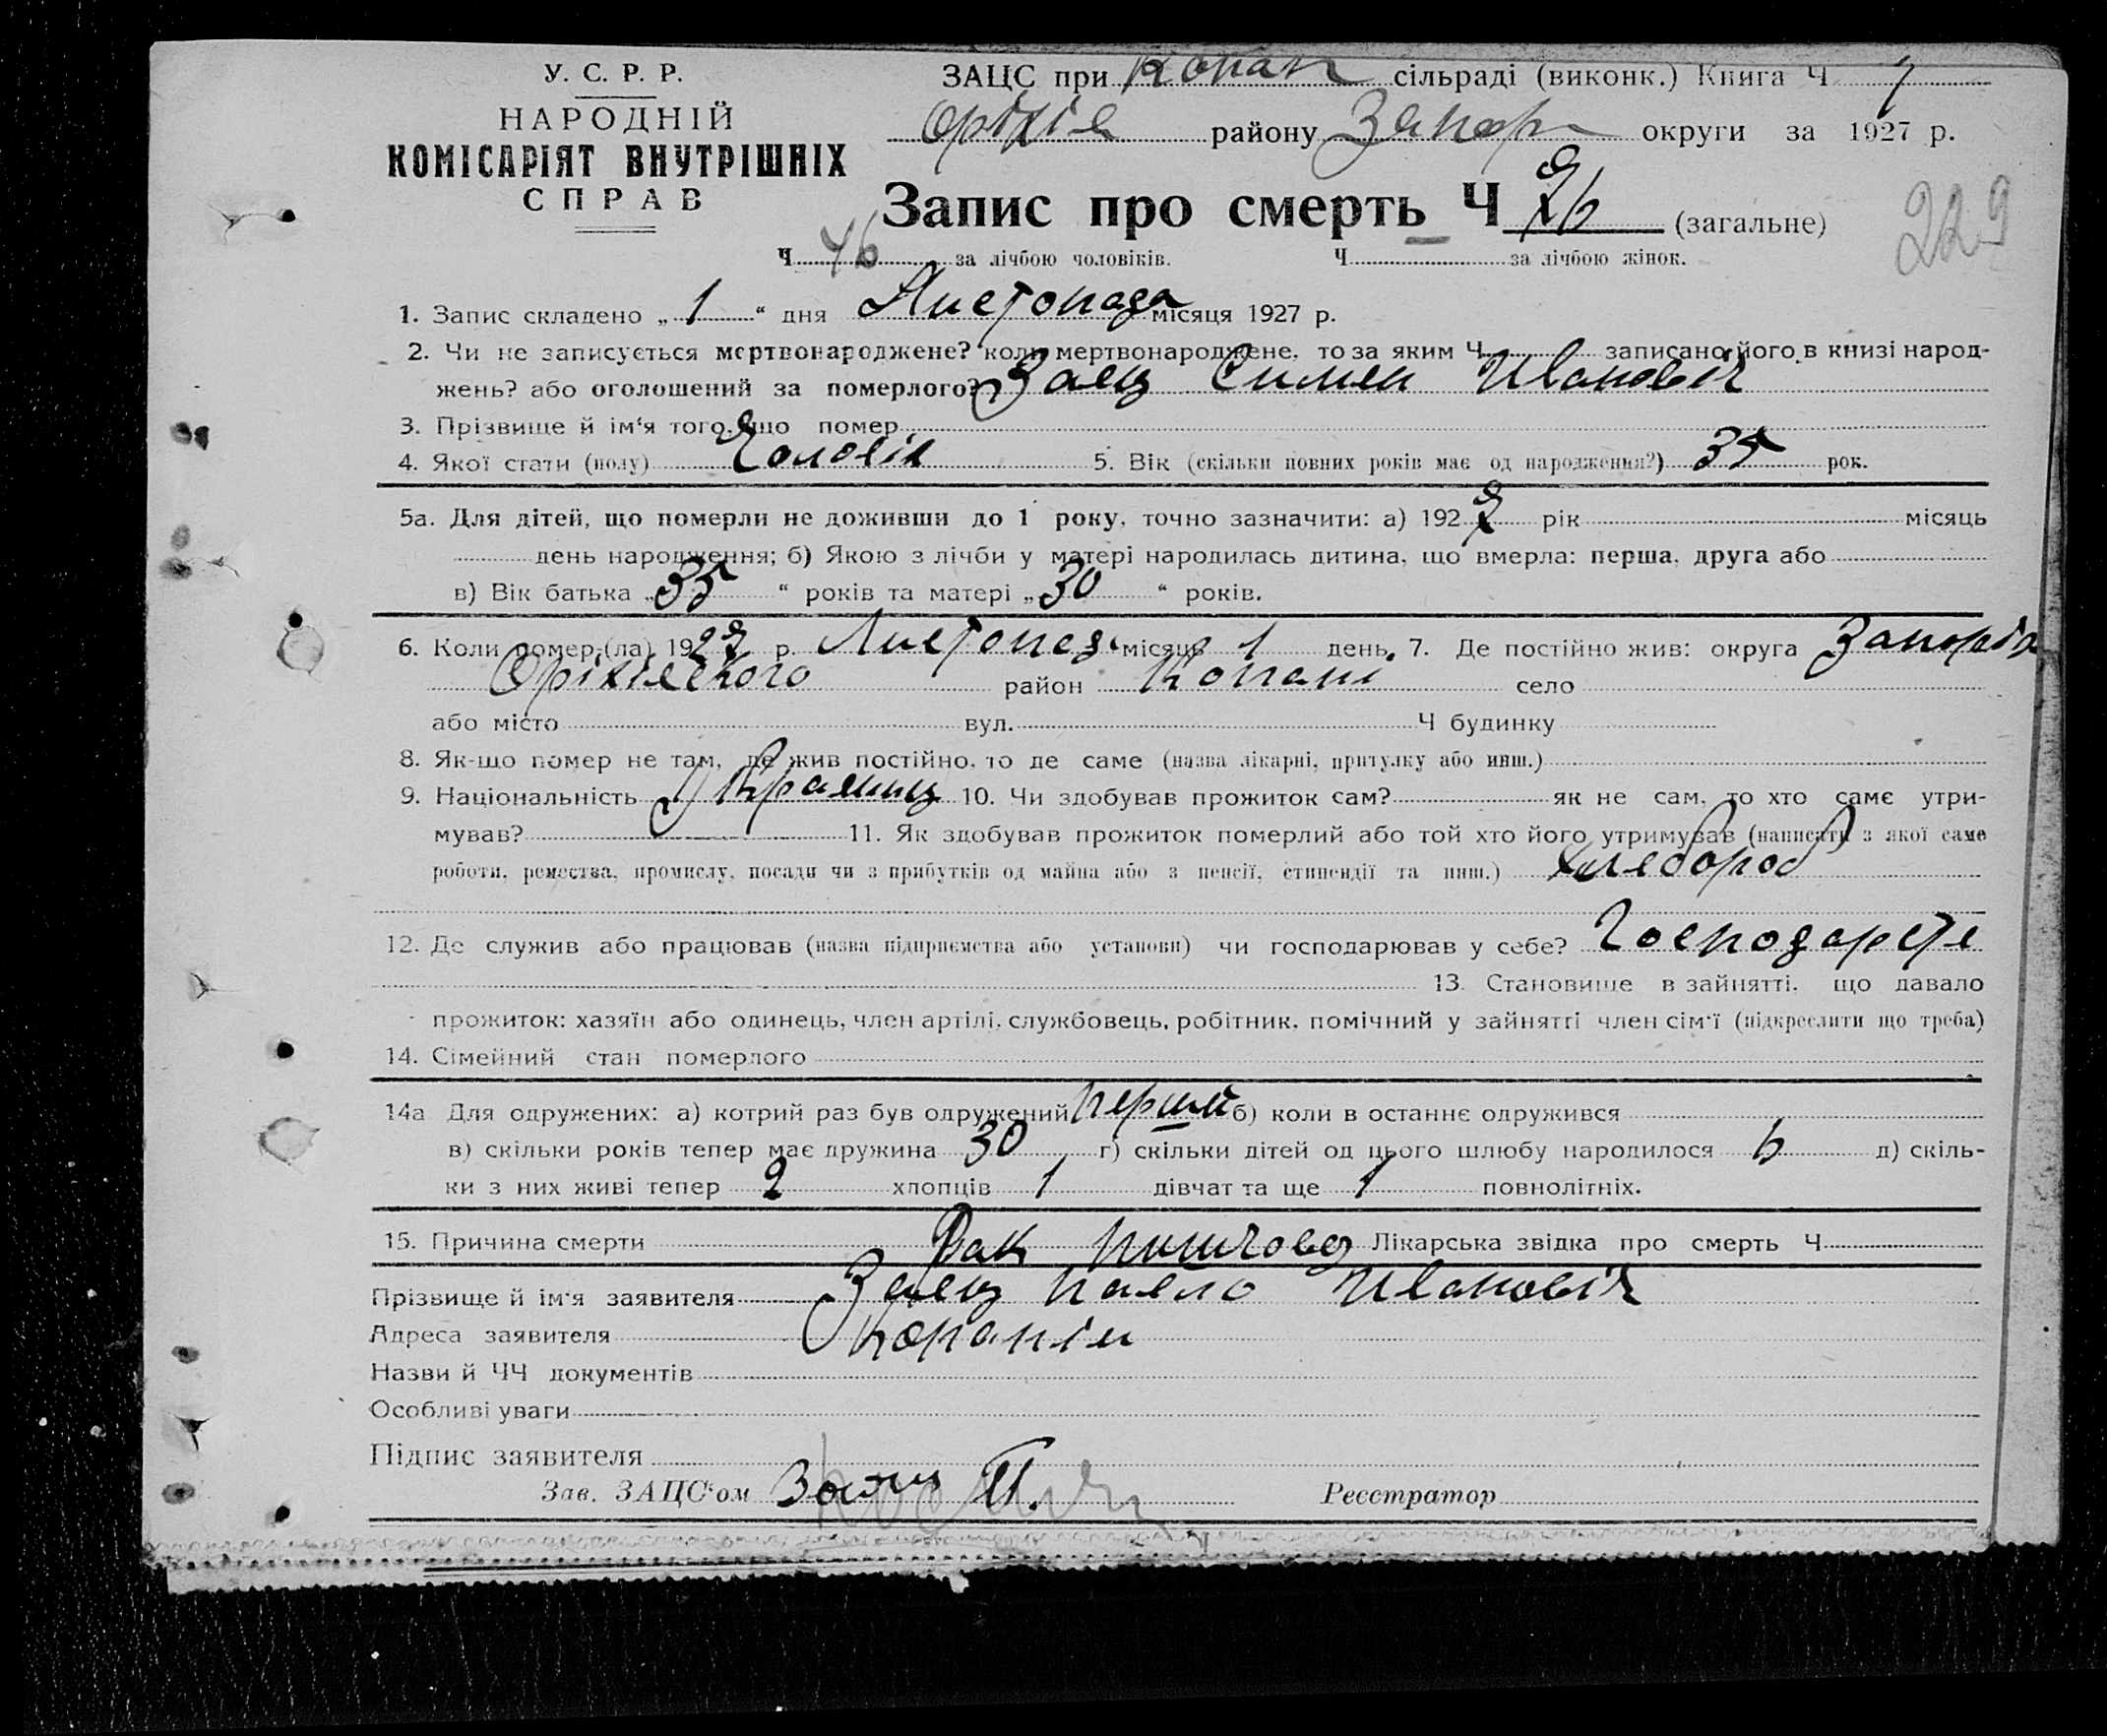 У. С. Р. Р.
НАРОДНІЙ
КОМІСАРІЯТ ВНУТРІШНІХ
СПРАВ
ЗАЦС при Копан сільраді (виконк.) Книга Ч 1
Оріхів району Запор округи за 1927 р.
Запис про смерть Ч 76 (загальне)
229
Ч 46 за лічбою чоловіків. Ч за лічбою жінок.
1. Запис складено „ 1 “ дня Листопада місяця 1927 р.
2. Чи не записується мертвонароджене? коли мертвонароджене, то за яким Ч записано його в книзі народ-
жень? або оголошений за померлого? Заец Симен Иванович
3. Прізвище й ім‘я того, що помер
4. Якої стати (полу) Чоловік 5. Вік (скільки повних років має од народження?) 35 рок.
5а. Для дітей, що померли не доживши до 1 року, точно зазначити: а) 1927 рік місяць
день народження; б) Якою з лічби у матері народилась дитина, що вмерла: перша, друга або
в) Вік батька „ 35 “ років та матері „ 30 “ років.
6. Коли помер (ла) 1927 р. Листопад місяць 1 день 7. Де постійно жив: округа Запоріз
Оріхівского район Копані село
або місто вул. Ч будинку
8. Як-що помер не там, де жив постійно, то де саме (назва лікарні, притулку або инш.)
9. Національність Украинц 10. Чи здобував прожиток сам? як не сам, то хто саме утри-
мував? 11. Як здобував прожиток померлий або той хто його утримував (написати з якої саме
роботи, ремества, промислу, посади чи з прибутків од майна або з пенсії, стипендії та инш.) хлебороб
12. Де служив або працював (назва підприємства або установи) чи господарював у себе? Господарстве
13. Становище в зайнятті, що давало
прожиток: хазяїн або одинець, член артілі, службовець, робітник, помічний у зайнятті член сім‘ї (підкреслити що треба)
14. Сімейний стан померлого
14а Для одружених: а) котрий раз був одружений перший б) коли в останнє одружився
в) скільки років тепер має дружина 30 г) скільки дітей од цього шлюбу народилося 6 д) скіль-
ки з них живі тепер 2 хлопців 1 дівчат та ще 1 повнолітніх.
15. Причина смерти Рак Лікарська звідка про смерть Ч
Прізвище й ім‘я заявителя Заец Павло Иванович
Адреса заявителя
Назви й ЧЧ документів
Особливі уваги
Підпис заявителя
Зав. ЗАЦС‘ом Заяц П. Реєстратор